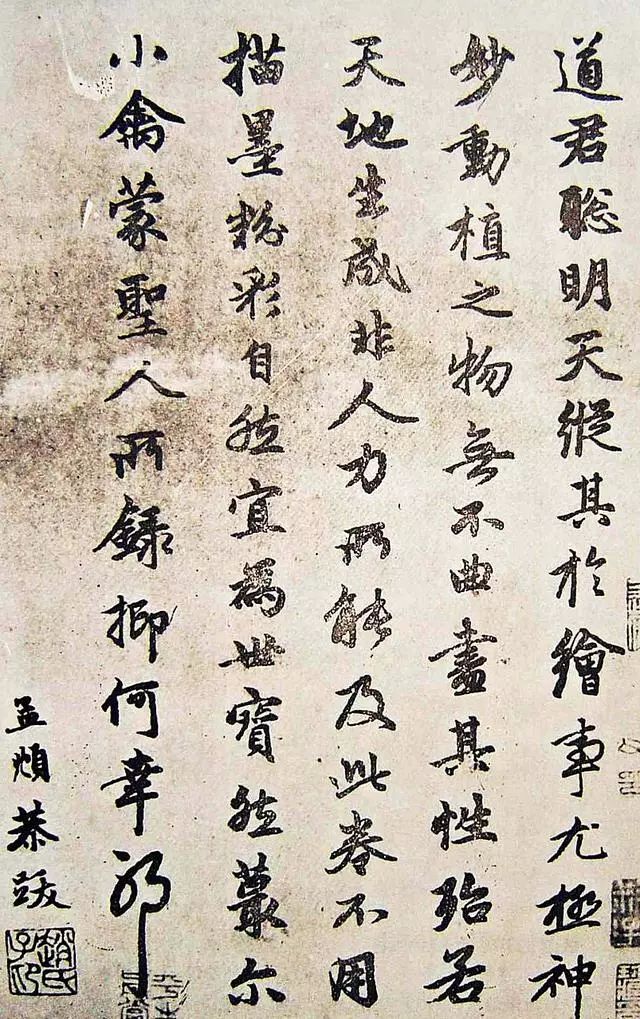 道君聰明天縱其於繪事尤極神
妙動植之物無不曲盡其性殆若
天地生成非人力所能及此卷不用
描墨粉彩自然宜為世寶然蕞尔
小禽蒙聖人所録抑何幸耶
孟頫恭跋
趙氏子昂